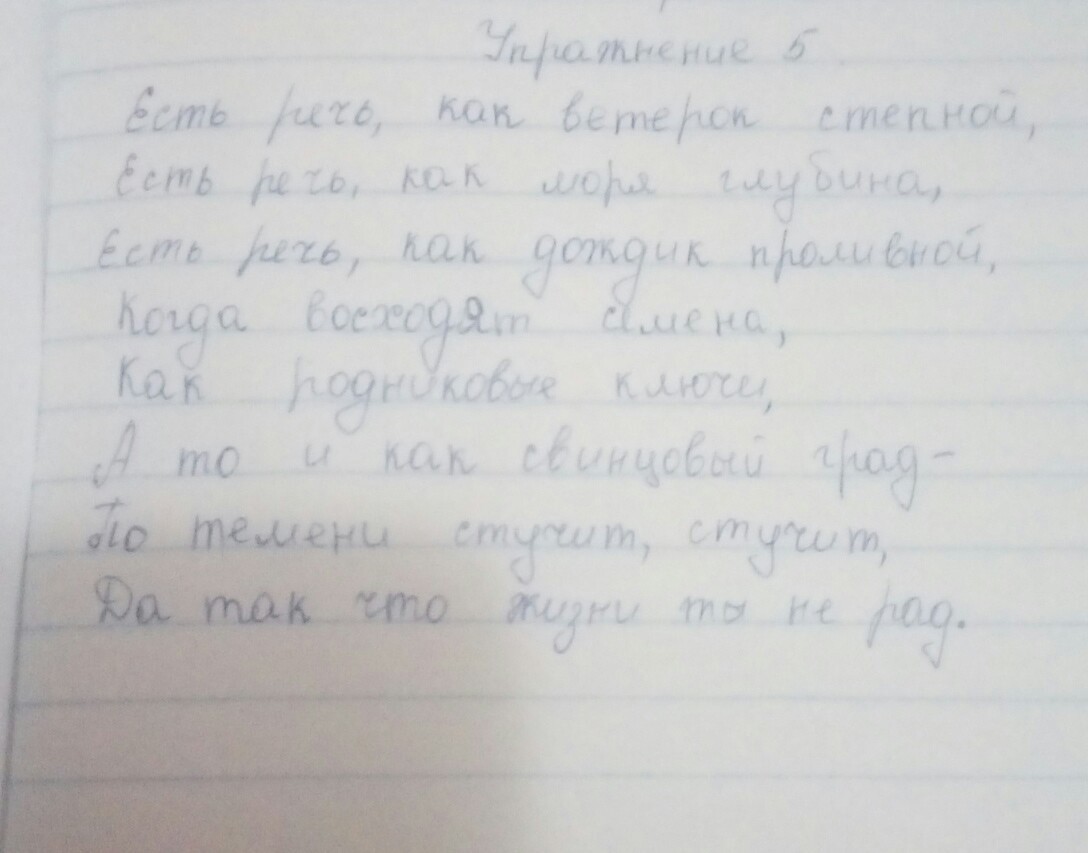 Упражнение 5.
Есть речь, как ветерок степной,
Есть речь, как моря глубина,
Есть речь, как дождик проливной,
Когда восходят семена,
Как родниковые ключи,
А то и как свинцовый град-
По темени стучит, стучит,
Да так что жизни ты не рад.